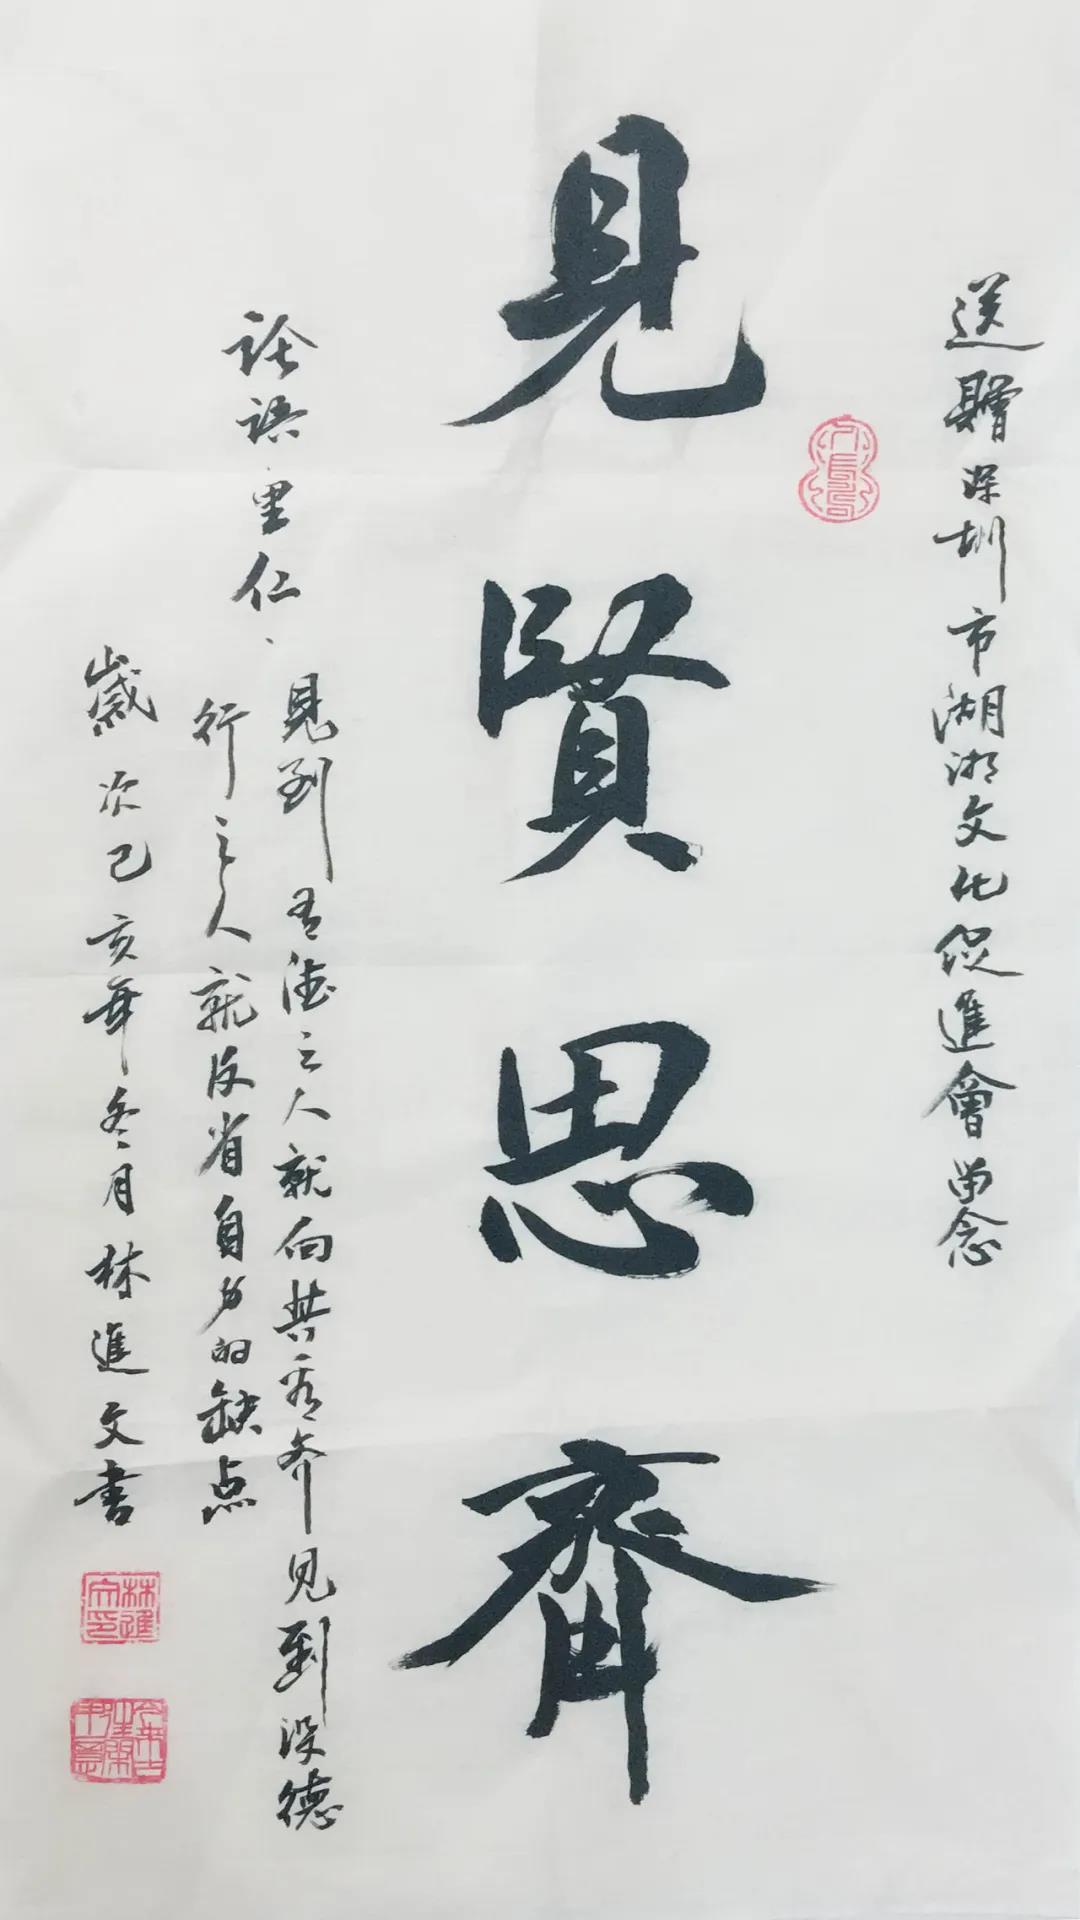 送贈深圳市湖湘文化促進會留念
見賢思齊
论语里仁、
見到有德之人就向其看齐见到没德
行之人就反省自身的缺点
歲次己亥年冬月林進文書
林進文印